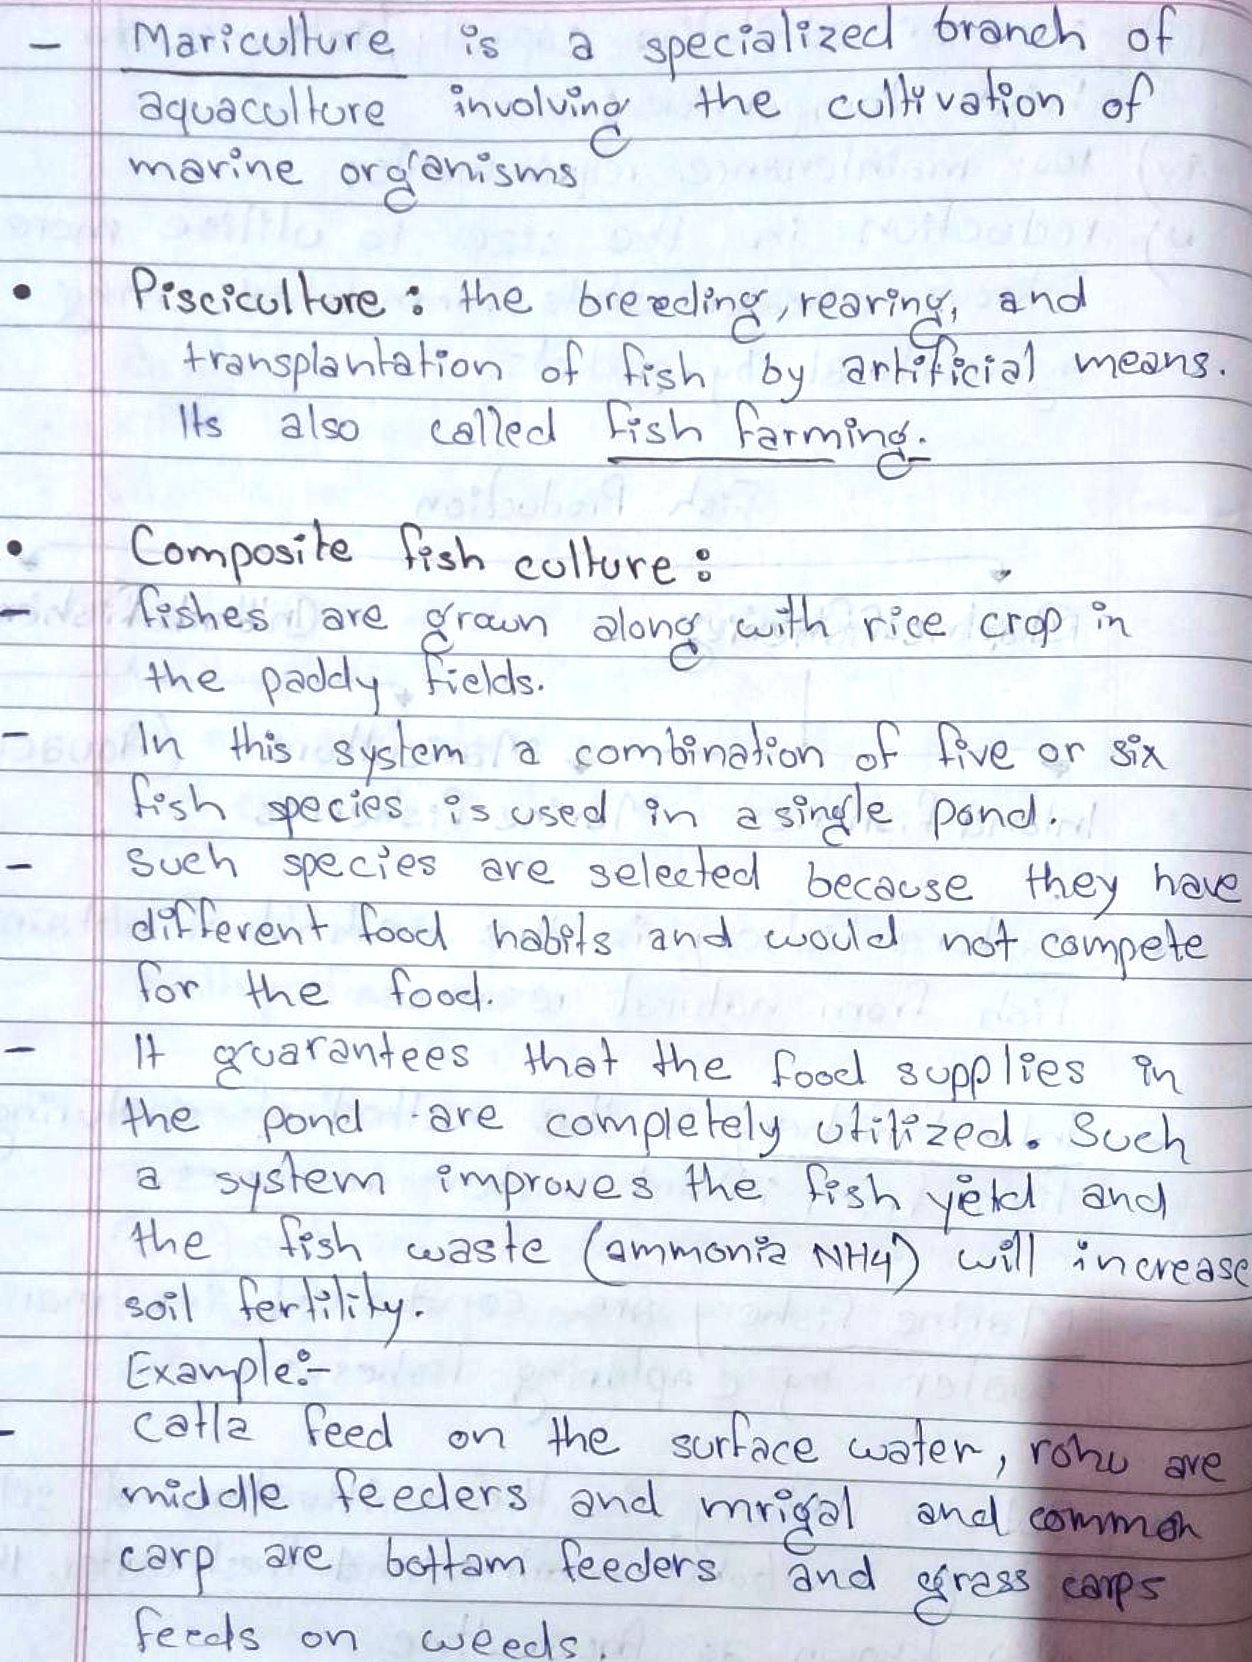 - Mariculture is a specialized branch of
aquaculture involving the cultivation of
marine organisms
• Pisciculture : the breeding, rearing, and
transplantation of fish by artificial means.
Its also called fish farming.
• Composite fish culture :
- fishes are grown along with rice crop in
the paddy fields.
- In this system a combination of five or six
fish species is used in a single pond.
- Such species are selected because they have
different food habits and would not compete
for the food.
- It guarantees that the food supplies in
the pond are completely utilized. Such
a system improves the fish yield and
the fish waste (ammonia NH4) will increase
soil fertility.
Example:-
- Catla feed on the surface water, rohu are
middle feeders and mrigal and common
carp are bottam feeders and grass carps
feeds on weeds.